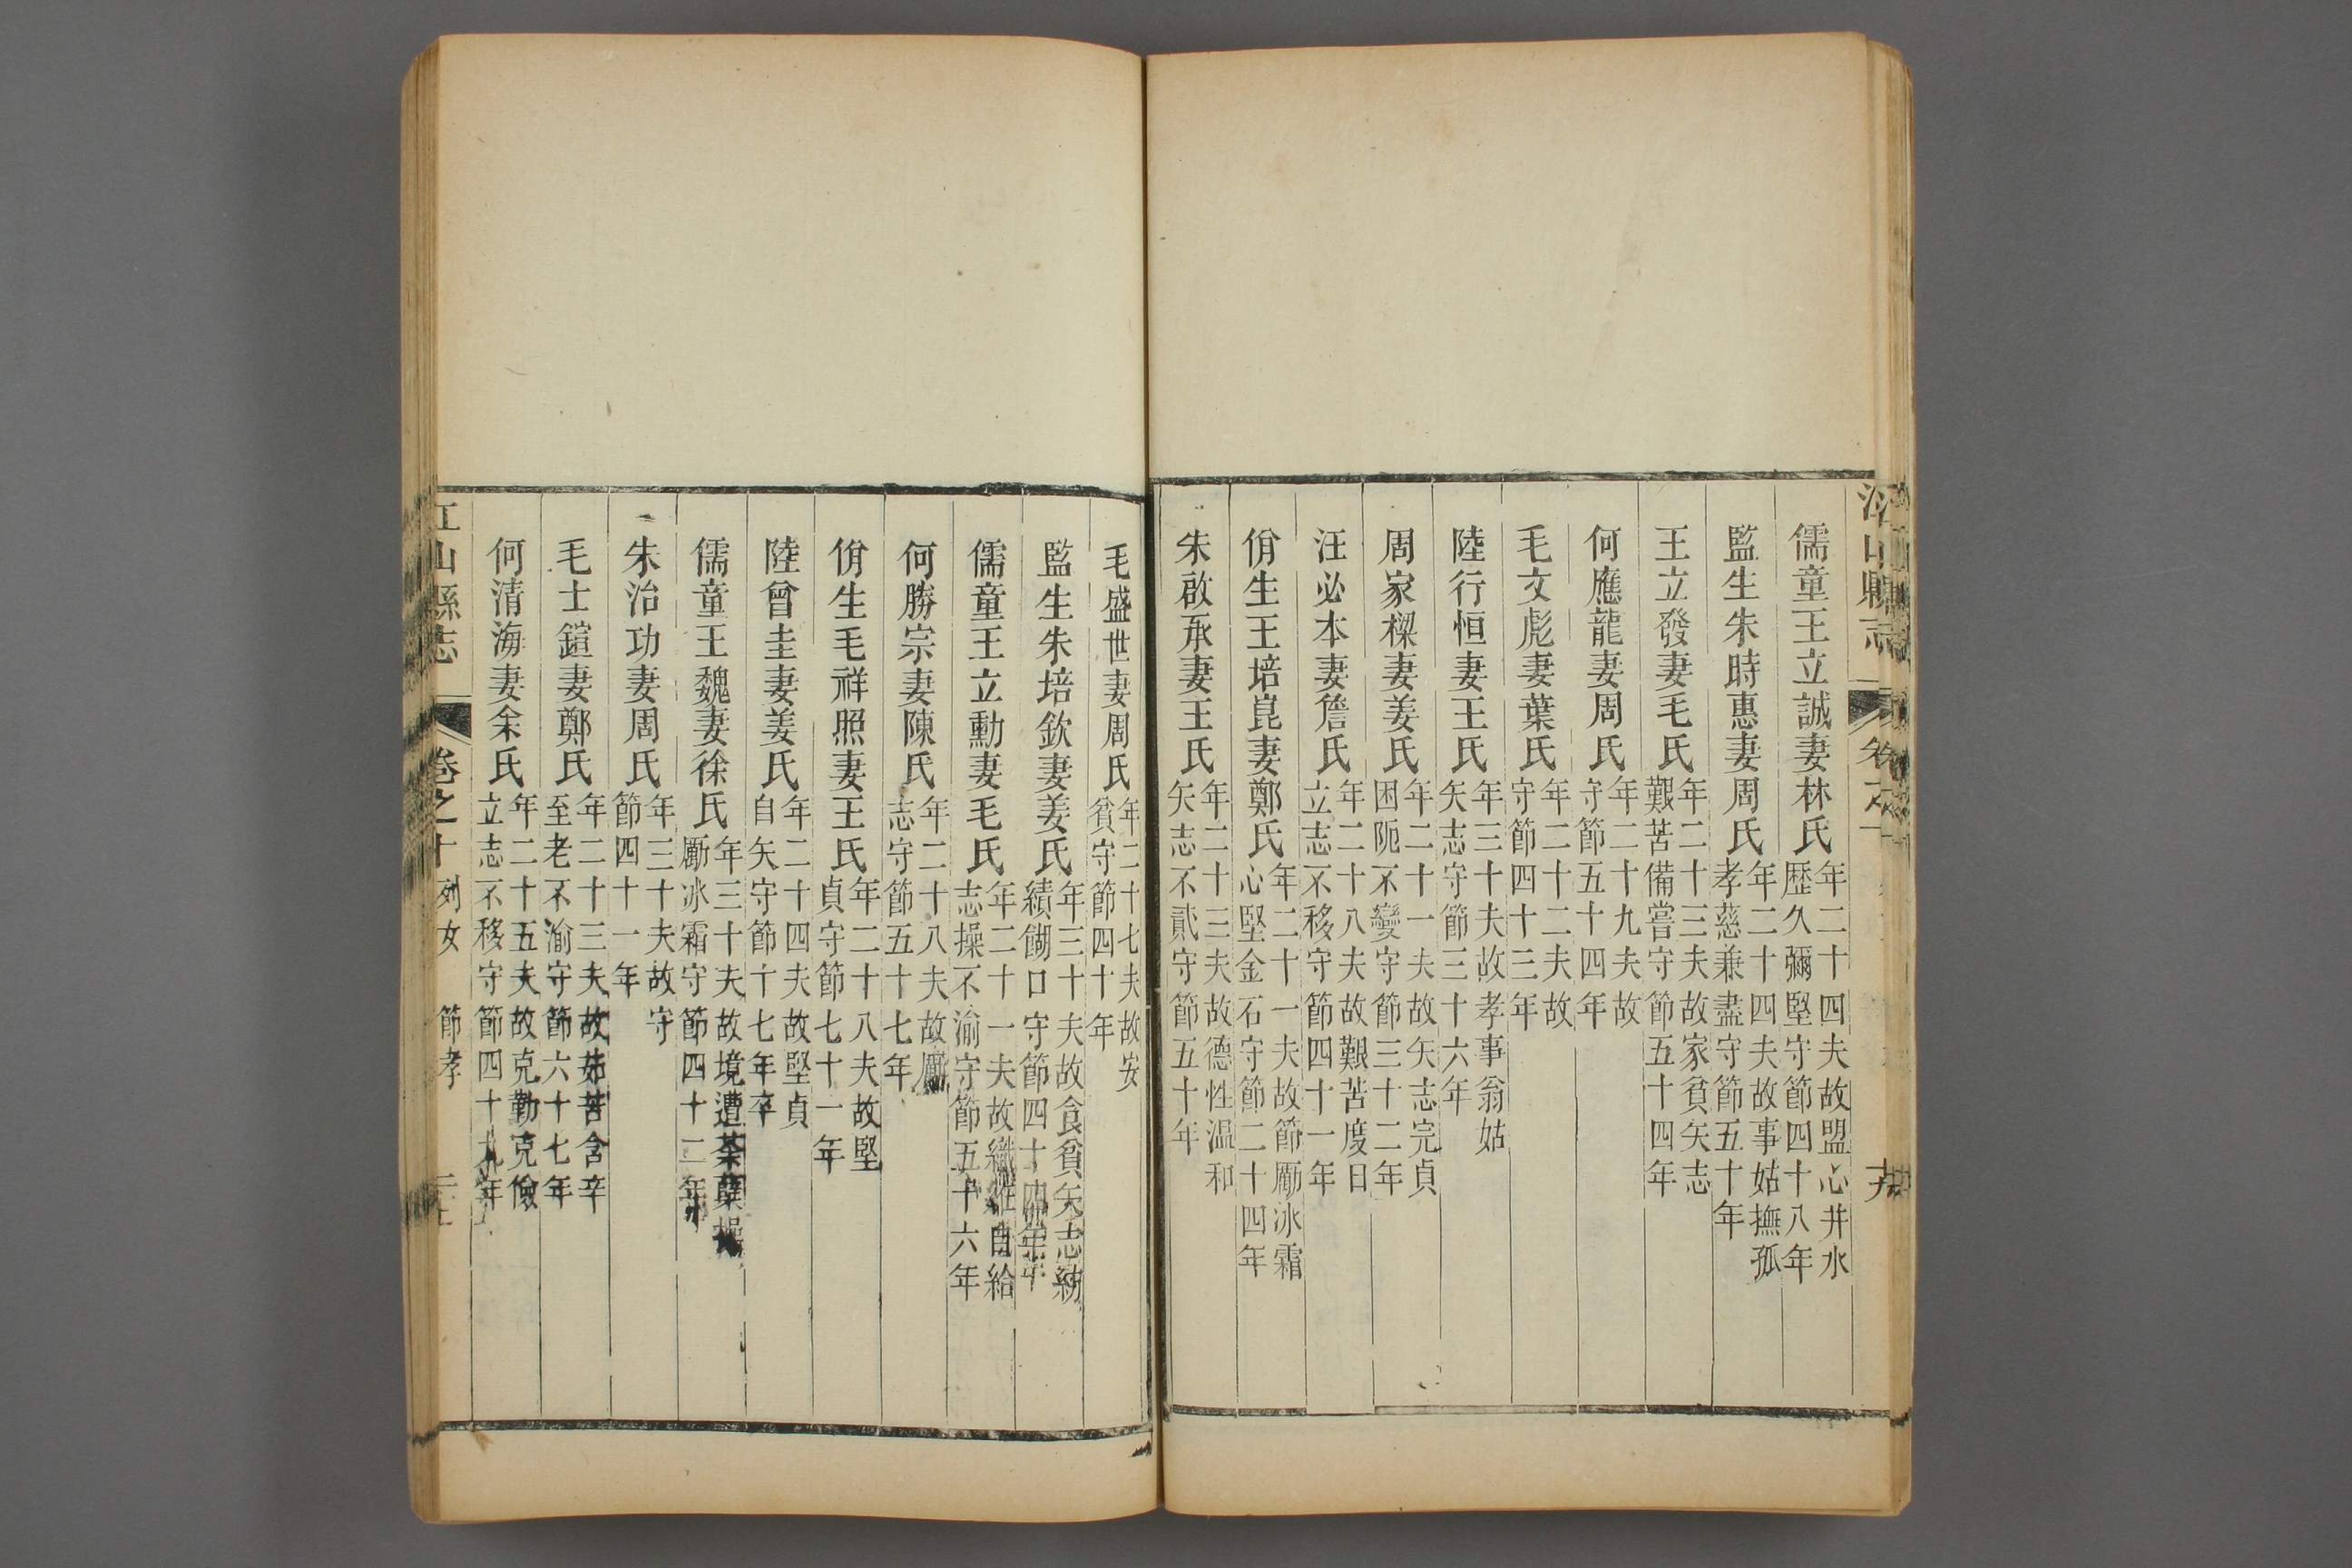 儒童王立誠妻林氏年二十四夫故盟心井水歷久彌堅守節四十八年
監生朱時惠妻周氏年二十四夫故事姑撫孤孝慈兼盡守節五十年
王立發妻毛氏年二十三夫故家貧矢志艱苦備嘗守節五十四年
何應龍妻周氏年二十九夫故守節五十四年
毛文彪妻葉氏年二十二夫故守節四十三年
陸行恒妻王氏年三十夫故孝事翁姑矢志守節三十六年
周家樑妻姜氏年二十一夫故矢志完貞困阨不變守節三十二年
汪必本妻詹氏年二十八夫故艱苦度日立志不移守節四十一年
佾生王培崑妻鄭氏年二十一夫故節勵冰霜心堅金石守節二十四年
朱啟承妻王氏年二十三夫故德性溫和矢志不貳守節五十年
毛盛世妻周氏年二十七夫故安貧守節四十年
監生朱培欽妻姜氏年三十夫故食貧矢志紡績餬口守節四十四年
儒童王立勳妻毛氏年二十一夫故織紝自給志操不渝守節五十六年
何勝宗妻陳氏年二十八夫故勵志守節五十七年
佾生毛祥照妻王氏年二十八夫故堅貞守節七十一年
陸曾圭妻姜氏年二十四夫故堅貞自矢守節十七年卒
儒童王魏妻徐氏年三十夫故境遭荼蘗操勵冰霜守節四十二年
朱治功妻周氏年三十夫故守節四十一年
毛士鎧妻鄭氏年二十三夫故茹苦含辛至老不渝守節六十七年
何清海妻余氏年二十五夫故克勤克儉立志不移守節四十九年
江山縣志 卷之十 列女 節孝